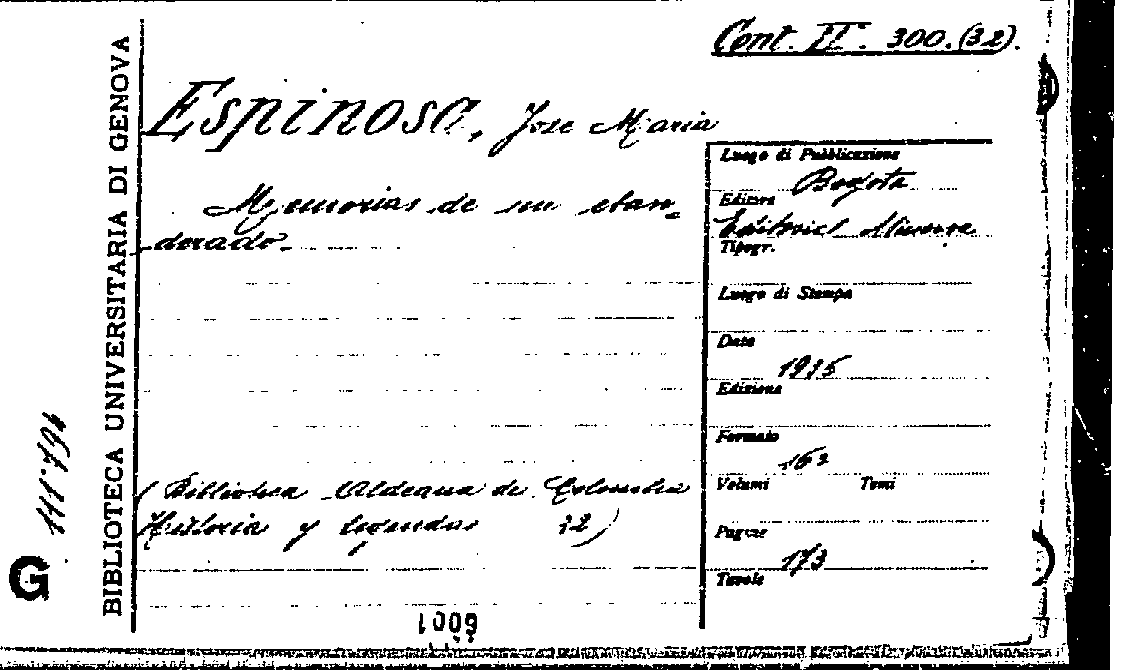 Cont. II. 300.(32).
Espinosa, Jose Maria
Memorias de un aban-
derado.
(Biblioteca Aldeana de Colombia
Historia y leyendas 32)
Luogo di Pubblicazione
Bogota
Editore
Editorial Minerva
Tipogr.
Luogo di Stampa
Data
1935
Edizione
Formato
16º
Volumi Tomi
Pagine
173
Tavole
BIBLIOTECA UNIVERSITARIA DI GENOVA
G
6001